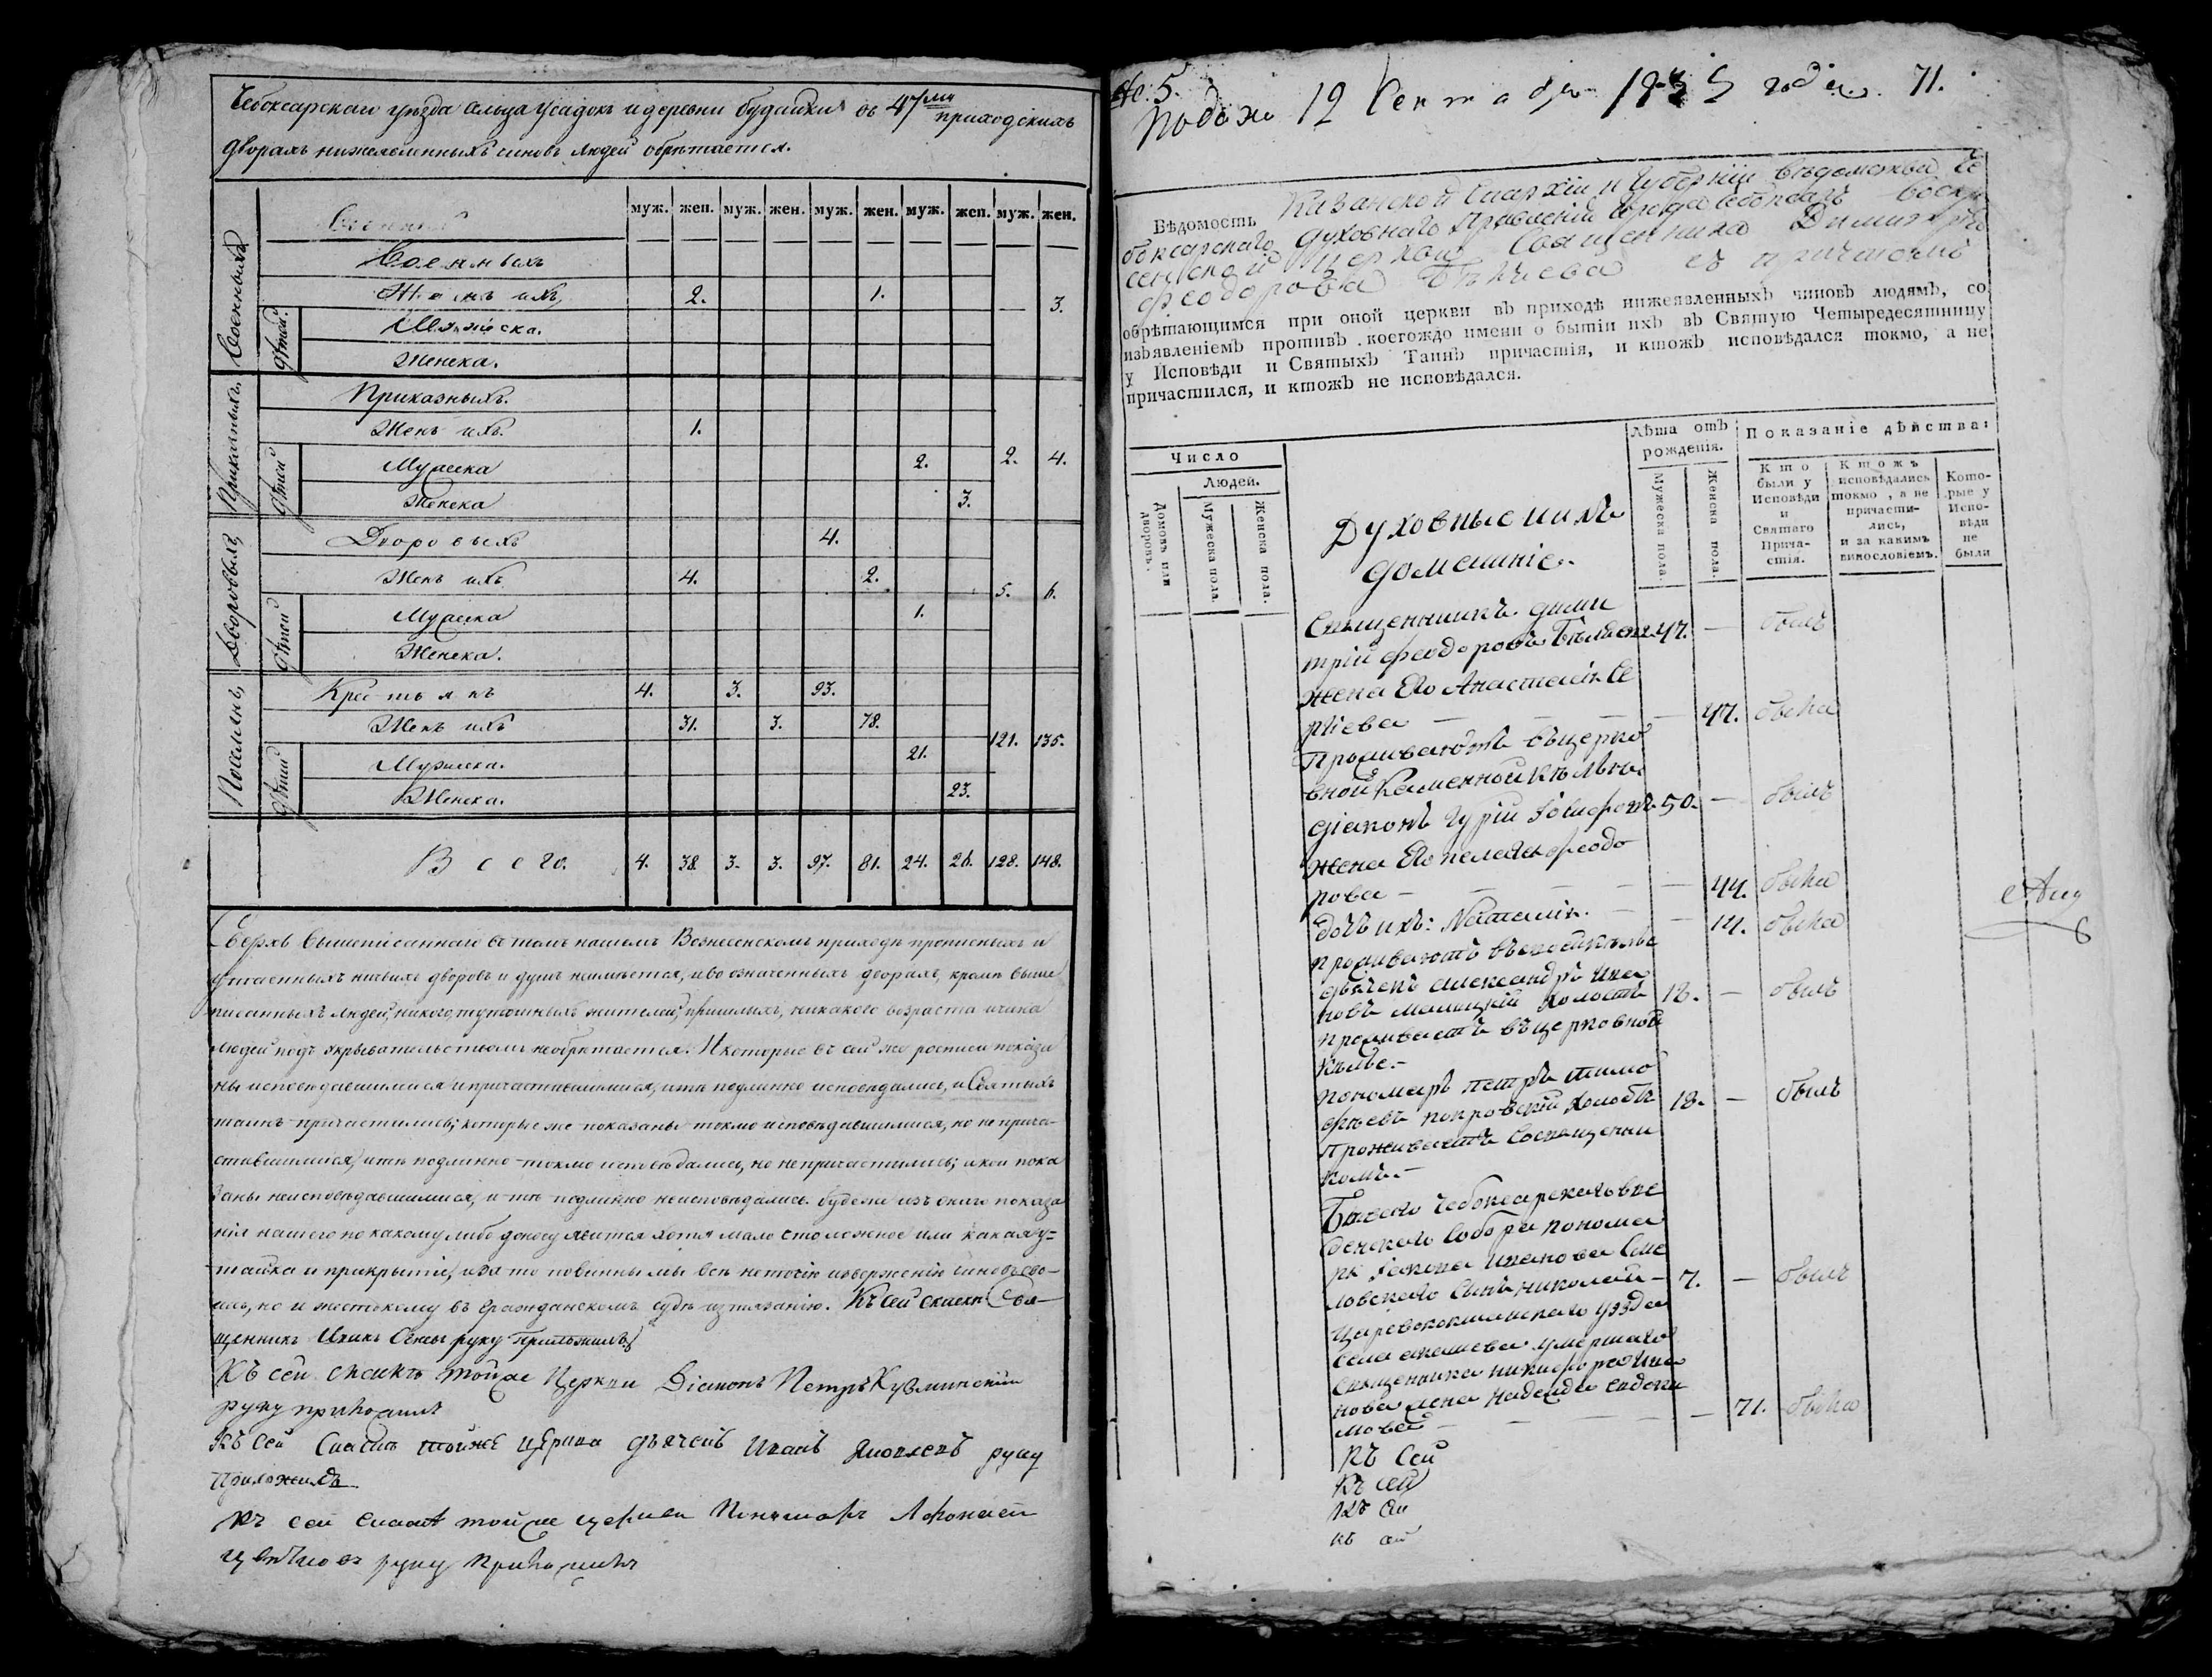 Чебоксарскаго уѣзда сельца Усадокъ и деревни Будайки въ 47ми приходскихъ
дворахъ нижеявленныхъ чиновъ людей обрѣтается.
муж. жен. муж. жен. муж. жен. муж. жен. муж. жен.
Военныхъ
Военныхъ
Женъ ихъ 2. 1. — 3.
дѣтей
Мужеска.
Женска.
Приказныхъ.
Приказныхъ.
Женъ ихъ. 1.
дѣтей
Мужеска 2. 2. 4.
Женска 3.
Дворовыхъ
Дворовыхъ 4.
Женъ ихъ 4. 2. 5. 6.
дѣтей
Мужеска 1.
Женска.
Крестьянъ 4. 3. 93.
Женъ ихъ 31. 3. 78. 121. 135.
дѣтей
Мужеска. 21.
Женска. 23.
Всего. 4. 38. 3. 3. 97. 81. 24. 26. 128. 148.
Сверхъ вышеписаннаго въ томъ нашемъ Вознесенскомъ приходѣ прописныхъ и
утаенныхъ никакихъ дворовъ и душъ неимѣется, и во означенныхъ дворахъ, кромѣ выше
писанныхъ людей, никого, тутошныхъ жителей, пришлыхъ, никакого возраста и чина
людей подъ укрывательствомъ необрѣтается. И которые въ сей же росписи показа
ны исповѣдавшимися и причастившимися, и тѣ подлинно исповѣдались, и Святыхъ
таинъ причастились; которые же показаны токмо исповѣдавшимися, но не прича-
стившимися, и тѣ подлинно токмо исповѣдались, но непричастились; и кои пока
заны неисповѣдавшимися, и тѣ подлинно неисповѣдались. Будеже изъ онаго показа
нія нашего по какому либо доносу явится хотя мало что ложное или какая у-
тайка и прикрытіе, и за то повинны мы всѣ неточію изверженію чиновъ сво-
ихъ, но и жестокому въ гражданскомъ судѣ изтязанію. Къ сей скаскѣ Свя-
щенникъ руку приложилъ
Къ сей скаскѣ тойже Церкви Діаконъ Петръ Кузминскій
руку приложилъ
Къ сей скаскѣ тойже церкви дьячекъ Иванъ Яковлевъ руку
приложилъ
Къ сей скаскѣ тойже церкви Пономарь Афонасей
руку приложилъ
№ 5.
Подано 12 Сентября года. 71.
Вѣдомость Казанской Епархіи и Губерніи вѣдомства Че
боксарскаго Духовнаго Правленія города Чебоксаръ Воскре
сенской церкви Священника Димитрія
Феодорова съ причтомъ
обрѣтающимся при оной церкви въ приходѣ нижеявленныхъ чиновъ людямъ, со
изъявленіемъ противъ коегождо имени о бытіи ихъ въ Святую Четыредесятницу
у Исповѣди и Святыхъ Таинъ причастія, и ктожъ исповѣдался токмо, а не
причастился, и ктожъ не исповѣдался.
Число
Людей.
Домовъ или дворовъ.
Мужеска пола.
Женска пола.
Духовные и ихъ
домашніе.
Лѣта отъ
рожденія.
Мужеска пола.
Женска пола.
Показаніе дѣйства:
Кто
были у
Исповѣди
и
Святаго
Прича-
стія.
Ктожъ
исповѣдались
токмо, а не
причасти-
лись,
и за какимъ
винословіемъ.
Кото-
рые у
Испо-
вѣди
не
были
Священникъ Дими
трій Феодоровъ 47. — былъ
жена его Анастасія Се
ргіева — — — — 47. была
Проживаютъ въ церко
вной каменной кѣльѣ.
Діаконъ Гурій 50. — былъ
жена его Пелагія Феодо
рова — — — — 44. была
дочь ихъ: Наталія. — — 14. была
проживаютъ въ своей кѣльѣ
дьячекъ Александръ Ива
новъ холостъ 18. — былъ
проживаетъ въ церковной
кѣльѣ. —
пономарь Петръ Тимо
фѣевъ Покровскій холостъ 18. — былъ
проживаетъ со священни
комъ. —
Бывшаго Чебоксарскаго Вве
денскаго Собора понома
ря Иванова
сынъ Николай — 7. — былъ
Царевококшайскаго уѣзда
села умершаго
священника Никифора Ива
нова жена Надежда Евдоки
мова — — — — 71. была
Къ сей
Къ сей
Къ сей
Къ сей